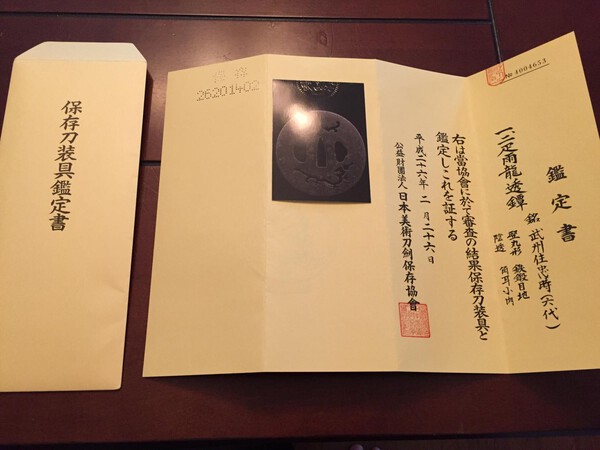 保存刀装具鑑定書
№ 4004653
鑑定書
一、二疋雨龍透鐔
銘 武州住忠時(六代)
竪丸形 鉄鍛目地
陰透 角耳小肉
右は當協會に於て審査の結果保存刀装具と
鑑定しこれを証する
平成二十六年二月二十六日
公益財團法人 日本美術刀劍保存協會
26201402